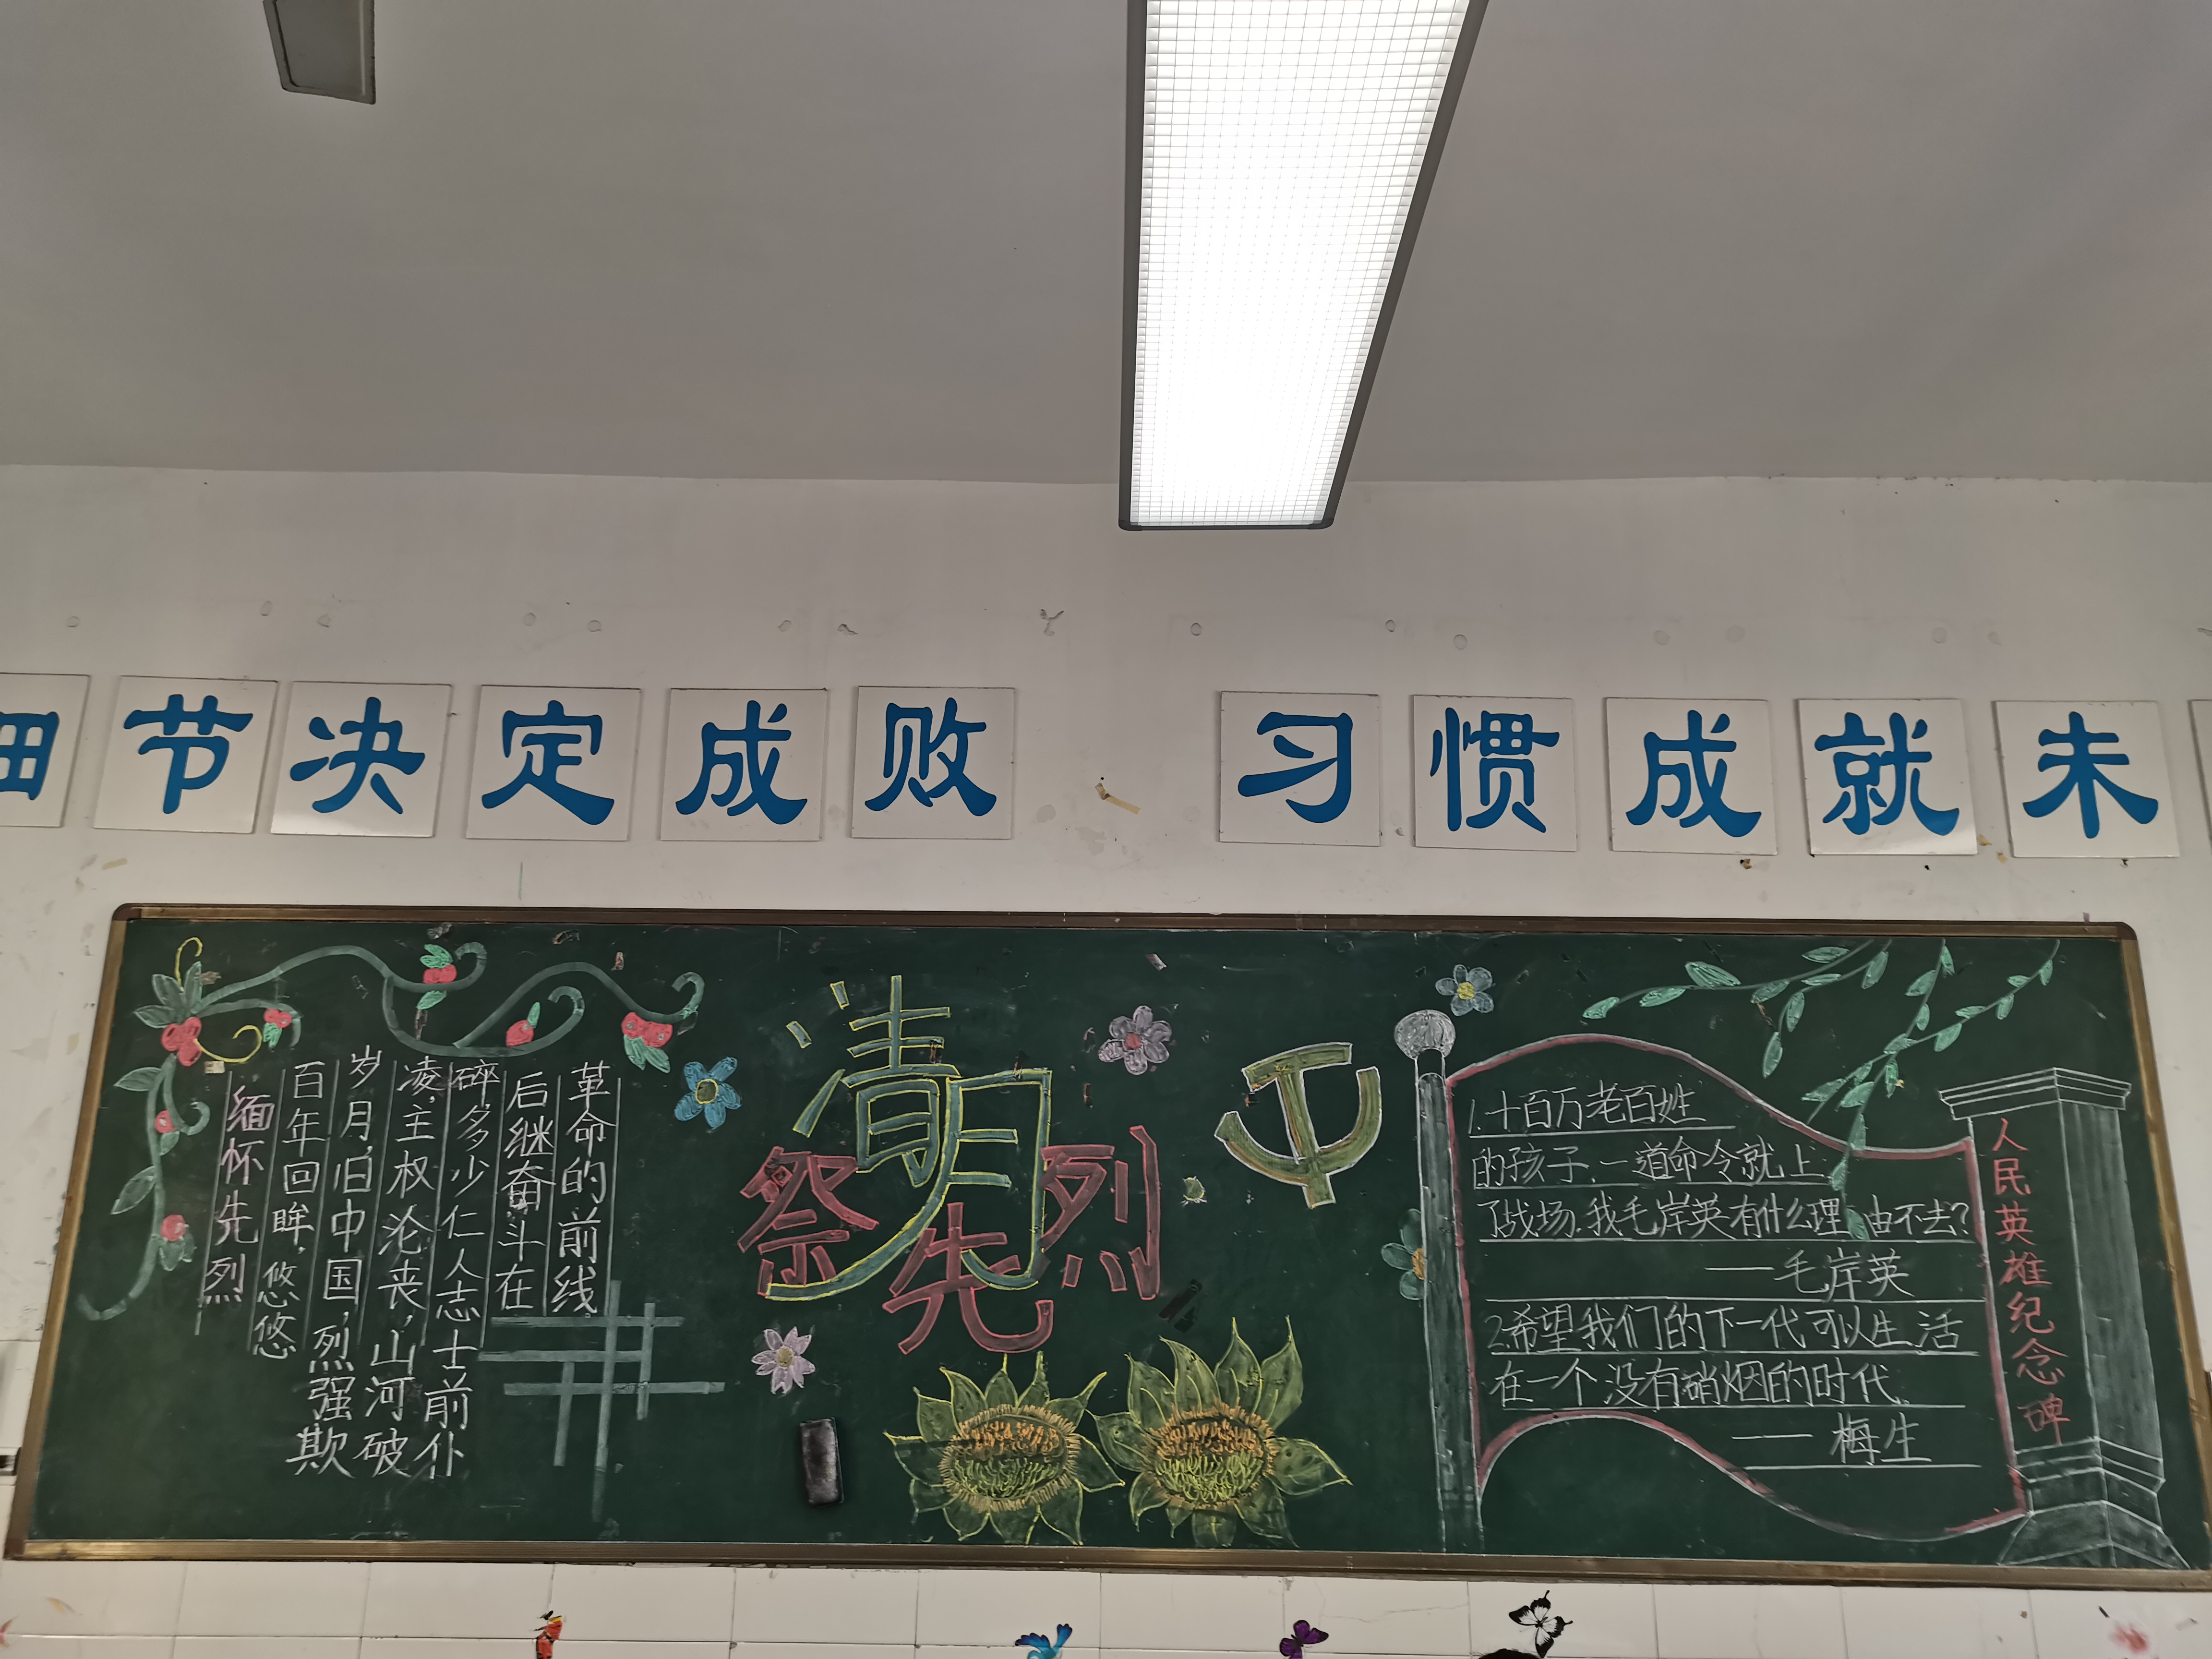 细节决定成败 习惯成就未
缅怀先烈
百年回眸,悠悠
岁月,旧中国,烈强欺
凌,主权沦丧,山河破
碎,多少仁人志士前仆
后继奋斗在
革命的前线.
清明
祭先烈
1.十百万老百姓
的孩子,一道命令就上
了战场.我毛岸英有什么理由不去?
——毛岸英
2.希望我们的下一代可以生活
在一个没有硝烟的时代.
——梅生
人民英雄纪念碑